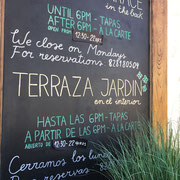 in the back
UNTIL 6PM - TAPAS
AFTER 6PM - A LA CARTE
OPEN FROM 12:30 - 22
We close on Mondays
For reservations 828180509
TERRAZA JARDIN
en el interior
HASTA LAS 6PM - TAPAS
A PARTIR DE LAS 6PM - A LA CARTE
ABIERTO DE 12:30 - 22
Cerramos los lunes
reservas